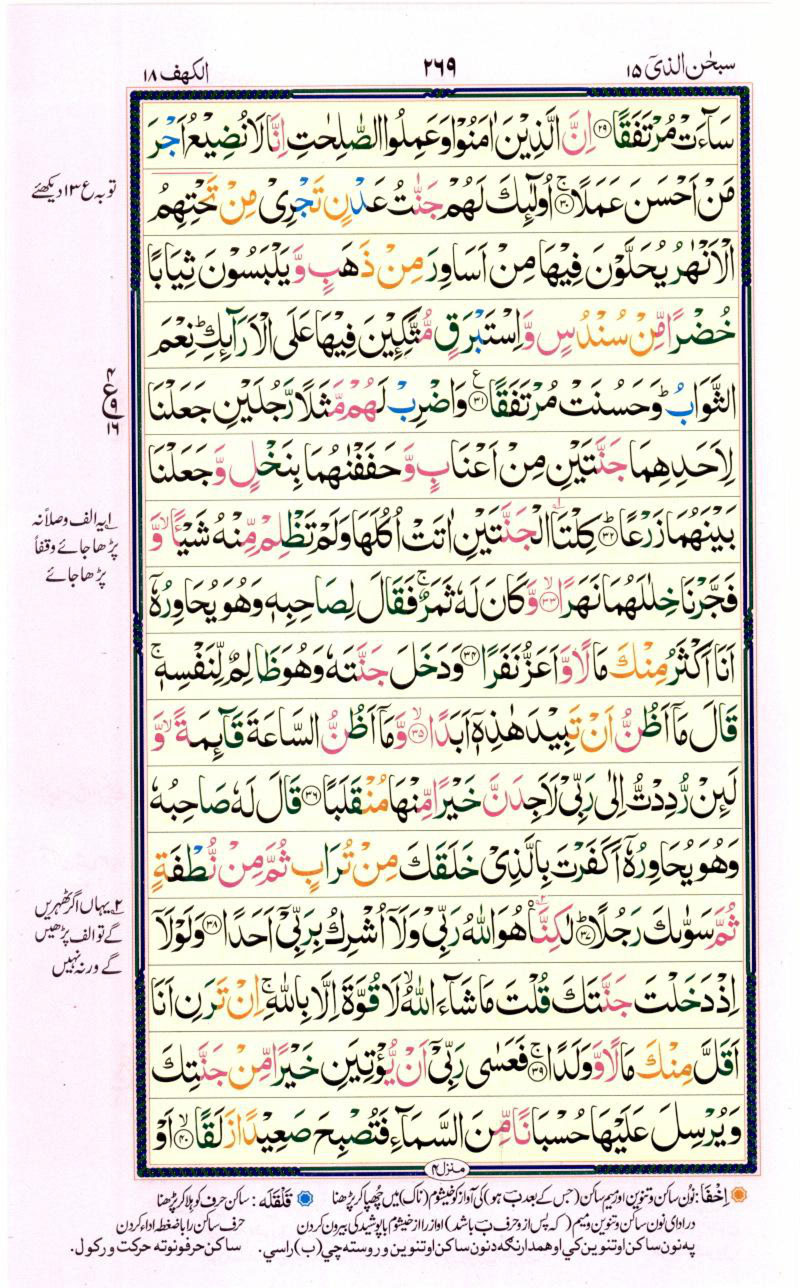 سبحٰن الذیٓ ۱۵
۲۶۹
الکهف ۱۸
سَآءَتْ مُرْتَفَقًا ۝۲۹ اِنَّ الَّذِیْنَ اٰمَنُوْا وَعَمِلُوا الصّٰلِحٰتِ اِنَّا لَا نُضِیْعُ اَجْرَ
مَنْ اَحْسَنَ عَمَلًا ۝۳۰ۚ اُولٰٓئِكَ لَهُمْ جَنّٰتُ عَدْنٍ تَجْرِیْ مِنْ تَحْتِهِمُ
الْاَنْهٰرُ یُحَلَّوْنَ فِیْهَا مِنْ اَسَاوِرَ مِنْ ذَهَبٍ وَّیَلْبَسُوْنَ ثِیَابًا
خُضْرًا مِّنْ سُنْدُسٍ وَّاِسْتَبْرَقٍ مُّتَّكِـِٕیْنَ فِیْهَا عَلَی الْاَرَآىِٕكِ ؕ نِعْمَ
الثَّوَابُ ؕ وَحَسُنَتْ مُرْتَفَقًا ۝۳۱ۧ وَاضْرِبْ لَهُمْ مَّثَلًا رَّجُلَیْنِ جَعَلْنَا
لِاَحَدِهِمَا جَنَّتَیْنِ مِنْ اَعْنَابٍ وَّحَفَفْنٰهُمَا بِنَخْلٍ وَّجَعَلْنَا
بَیْنَهُمَا زَرْعًا ۝۳۲ؕ كِلْتَا الْجَنَّتَیْنِ اٰتَتْ اُكُلَهَا وَلَمْ تَظْلِمْ مِّنْهُ شَیْـًٔا ۙ وَّ
فَجَّرْنَا خِلٰلَهُمَا نَهَرًا ۝۳۳ۙ وَّكَانَ لَهٗ ثَمَرٌ ۚ فَقَالَ لِصَاحِبِهٖ وَهُوَ یُحَاوِرُهٗۤ
اَنَا اَكْثَرُ مِنْكَ مَالًا وَّاَعَزُّ نَفَرًا ۝۳۴ وَدَخَلَ جَنَّتَهٗ وَهُوَ ظَالِمٌ لِّنَفْسِهٖ ۚ
قَالَ مَاۤ اَظُنُّ اَنْ تَبِیْدَ هٰذِهٖۤ اَبَدًا ۝۳۵ۙ وَّمَاۤ اَظُنُّ السَّاعَةَ قَآىِٕمَةً ۙ وَّ
لَىِٕنْ رُّدِدْتُّ اِلٰی رَبِّیْ لَاَجِدَنَّ خَیْرًا مِّنْهَا مُنْقَلَبًا ۝۳۶ قَالَ لَهٗ صَاحِبُهٗ
وَهُوَ یُحَاوِرُهٗۤ اَكَفَرْتَ بِالَّذِیْ خَلَقَكَ مِنْ تُرَابٍ ثُمَّ مِنْ نُّطْفَةٍ
ثُمَّ سَوّٰىكَ رَجُلًا ۝۳۷ؕ لٰكِنَّا۠ هُوَ اللّٰهُ رَبِّیْ وَلَاۤ اُشْرِكُ بِرَبِّیْۤ اَحَدًا ۝۳۸ وَلَوْلَاۤ
اِذْ دَخَلْتَ جَنَّتَكَ قُلْتَ مَا شَآءَ اللّٰهُ ۙ لَا قُوَّةَ اِلَّا بِاللّٰهِ ۚ اِنْ تَرَنِ اَنَا
اَقَلَّ مِنْكَ مَالًا وَّوَلَدًا ۝۳۹ۚ فَعَسٰی رَبِّیْۤ اَنْ یُّؤْتِیَنِ خَیْرًا مِّنْ جَنَّتِكَ
وَیُرْسِلَ عَلَیْهَا حُسْبَانًا مِّنَ السَّمَآءِ فَتُصْبِحَ صَعِیْدًا زَلَقًا ۝۴۰ۙ اَوْ
توبہ ع ۱۳ دیکھئے
۴
ع
۹
۱۶
۱ یہ الف وصلاً نہ
پڑھا جائے وقفاً
پڑھا جائے
۲ یہاں اگر ٹھہریں
گے تو الف پڑھیں
گے ورنہ نہیں
منزل ۴
اِخْفَا: نون ساکن و تنوین اور میم ساکن (جس کے بعد بَ ہو) کی آواز کو خیشوم (ناک) میں چھپا کر پڑھنا قَلْقَلَہ: ساکن حرف کو ہلا کر پڑھنا
در ادای نون ساکن و تنوین و میم (که پس از و حرف بَ باشد) اواز را از خیشوم با پوشیدگی بیرون کردن حرف ساکن را با ضغطه اداء کردن
په نون ساکن او تنوین کي او همدارنگه د نون ساکن او تنوین وروسته چي (ب) راسي. ساکن حرفونو ته حرکت ورکول.